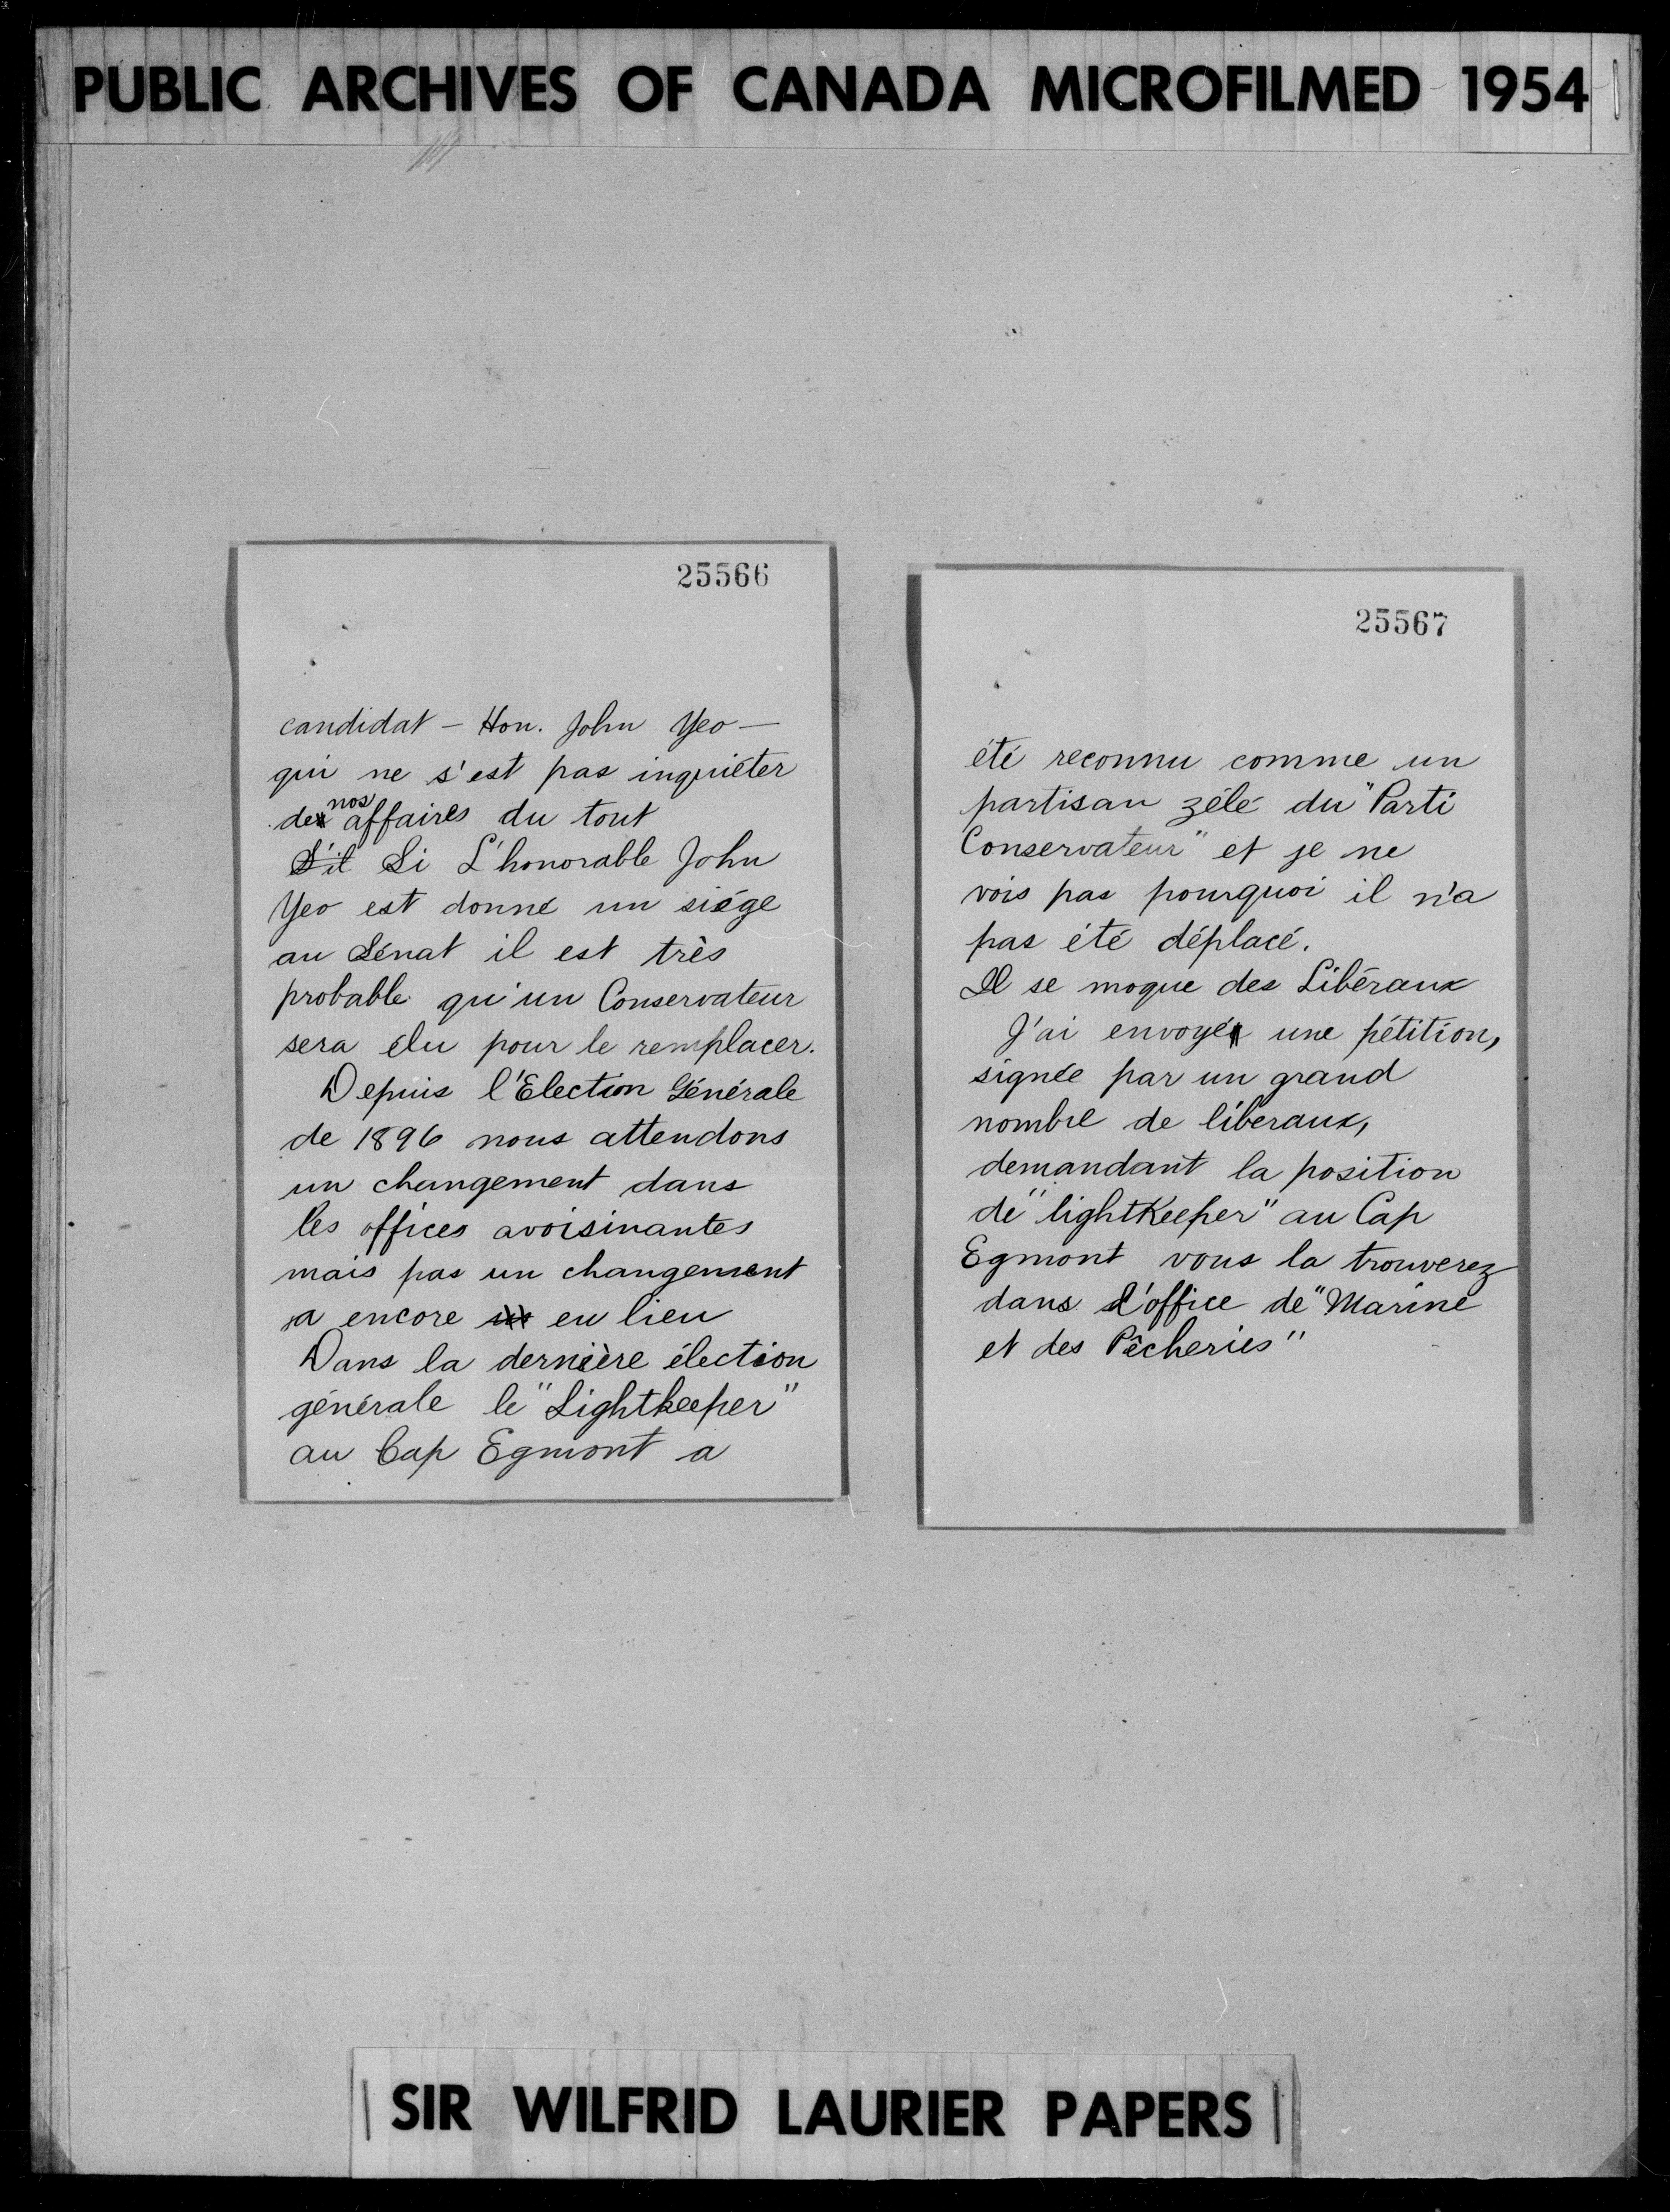 PUBLIC ARCHIVES OF CANADA MICROFILMED 1954
25566
candidat – Hon. John Yeo –
qui ne s'est pas inquiéter
de nos affaires du tout
S'il Si L'honorable John
Yeo est donné un siége
au Sénat il est très
probable qu'un Conservateur
sera élu pour le remplacer.
Depuis l'Election Générale
de 1896 nous attendons
un changement dans
les offices avoisinantes
mais pas un changement
a encore eu lieu
Dans la dernière élection
générale le "Lightkeeper"
au Cap Egmont a
25567
été reconnu comme un
partisan zélé du "Parti
Conservateur" et je ne
vois pas pourquoi il n'a
pas été déplacé.
Il se moque des Libéraux
J'ai envoyé une pétition,
signée par un grand
nombre de libéraux,
demandant la position
de "lightKeeper" au Cap
Egmont vous la trouverez
dans l'office de "Marine
et des Pêcheries"
SIR WILFRID LAURIER PAPERS